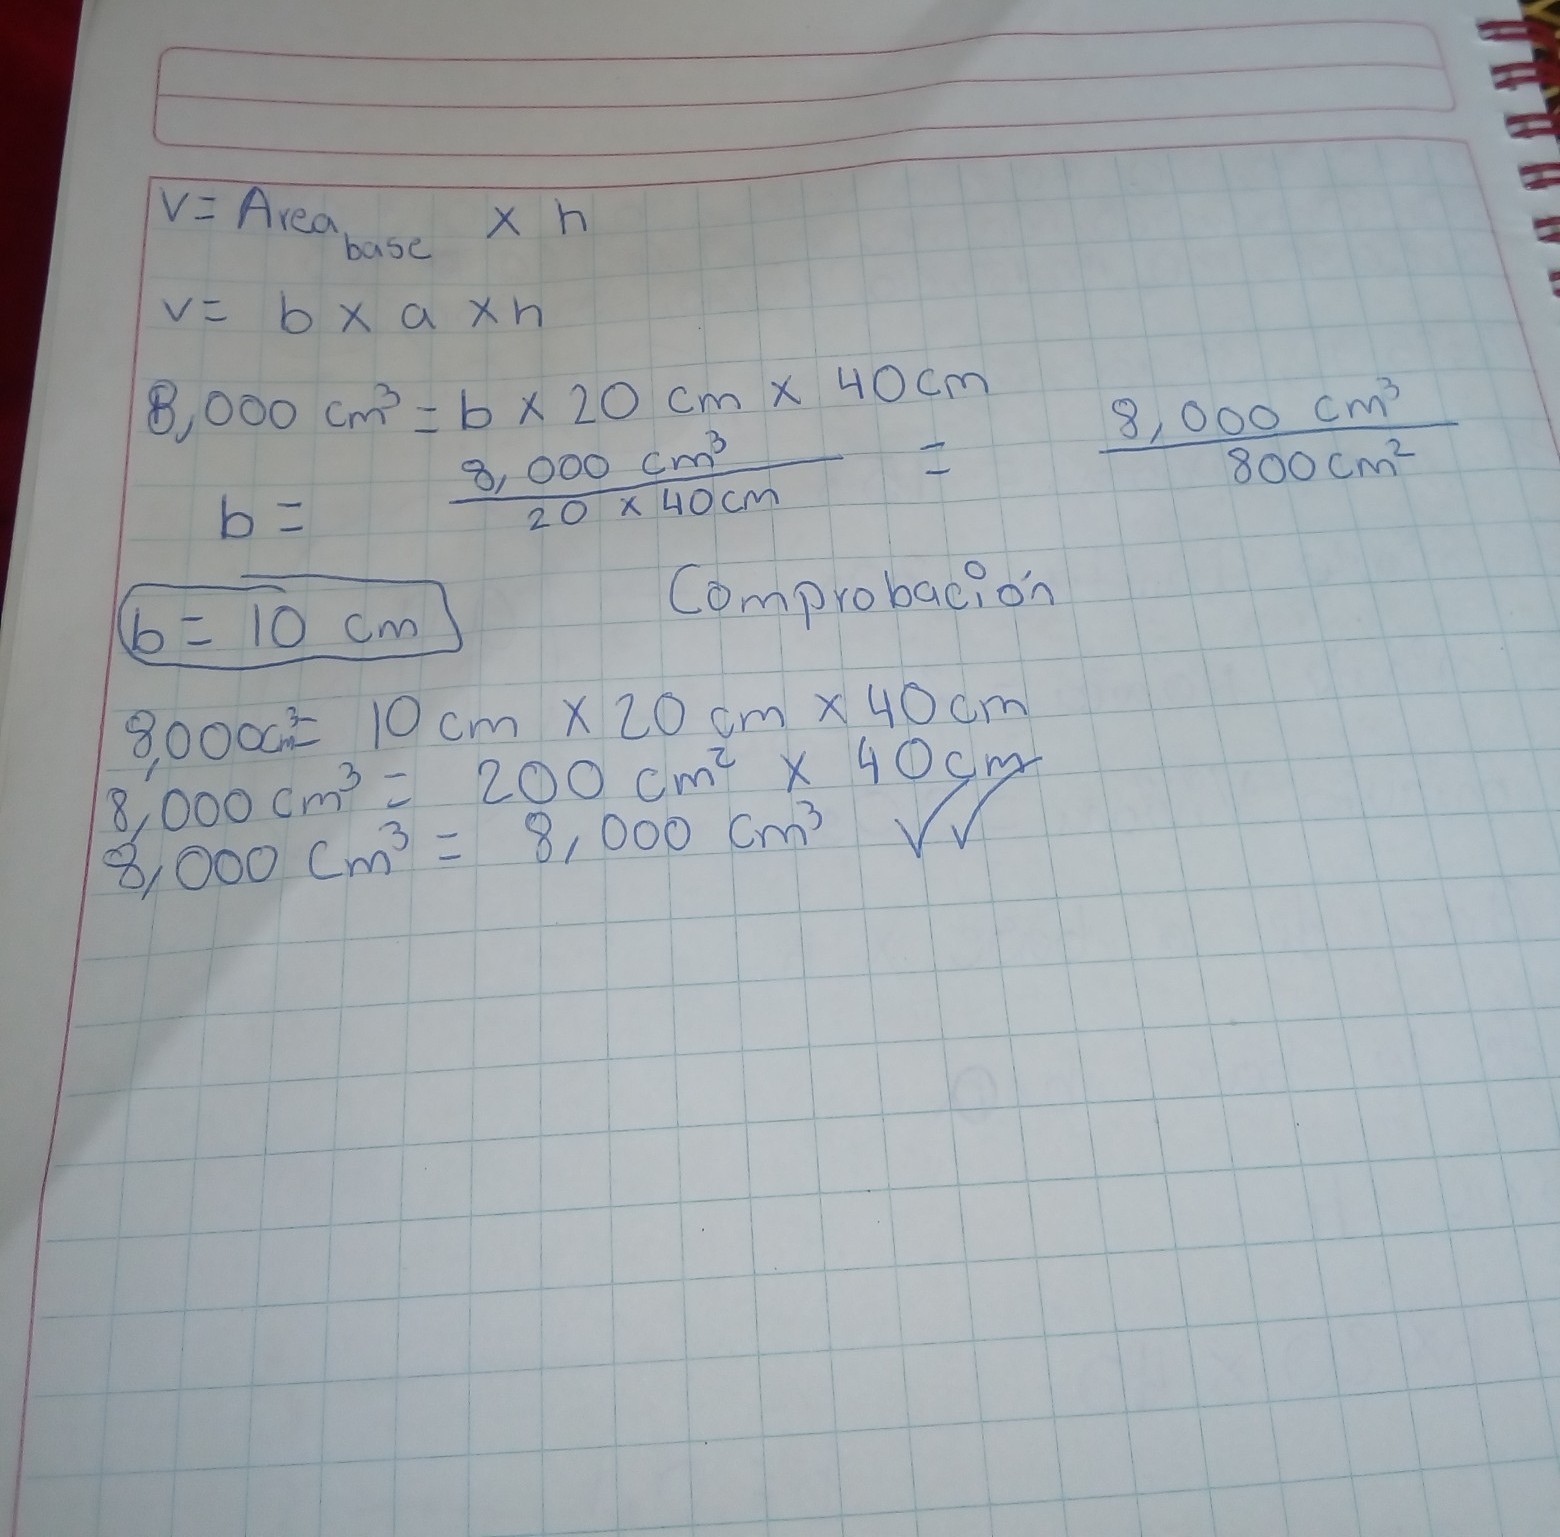 V = Area base x h
V = b x a x h
8,000 cm³ = b x 20 cm x 40 cm
b = 8,000 cm³ / 20 x 40 cm = 8,000 cm³ / 800 cm²
b = 10 cm
Comprobación
8,000 cm³ = 10 cm x 20 cm x 40 cm
8,000 cm³ = 200 cm² x 40 cm
8,000 cm³ = 8,000 cm³ ✓✓